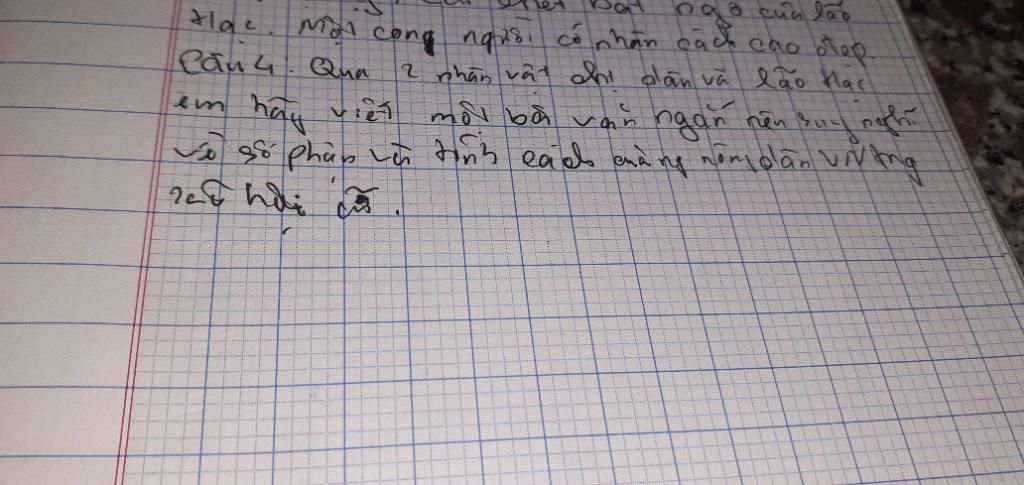 bất ngờ của lão
Hạc. Một con người có nhân cách cao đẹp.
Câu 4. Qua 2 nhân vật chị dân và lão Hạc
em hãy viết một bài văn ngắn nêu suy nghĩ
về số phận và tính cách nông dân VN tng
xã hội cũ.